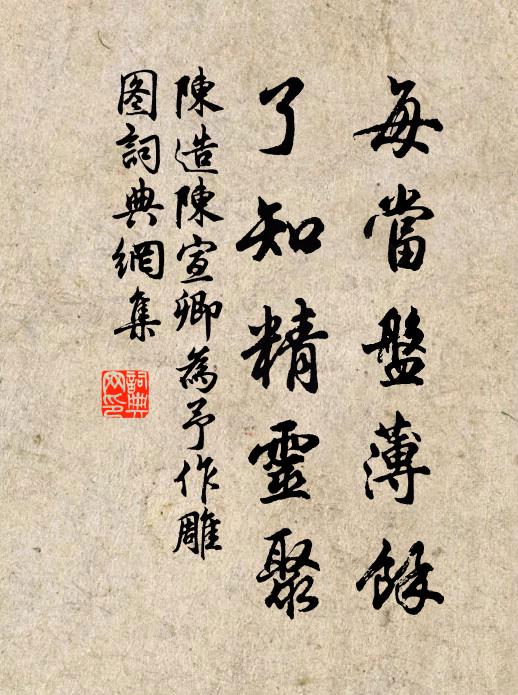 每當盤薄餘
了知精靈聚
陳造陳宣卿為予作雕
图詞典網集
詞典
网印